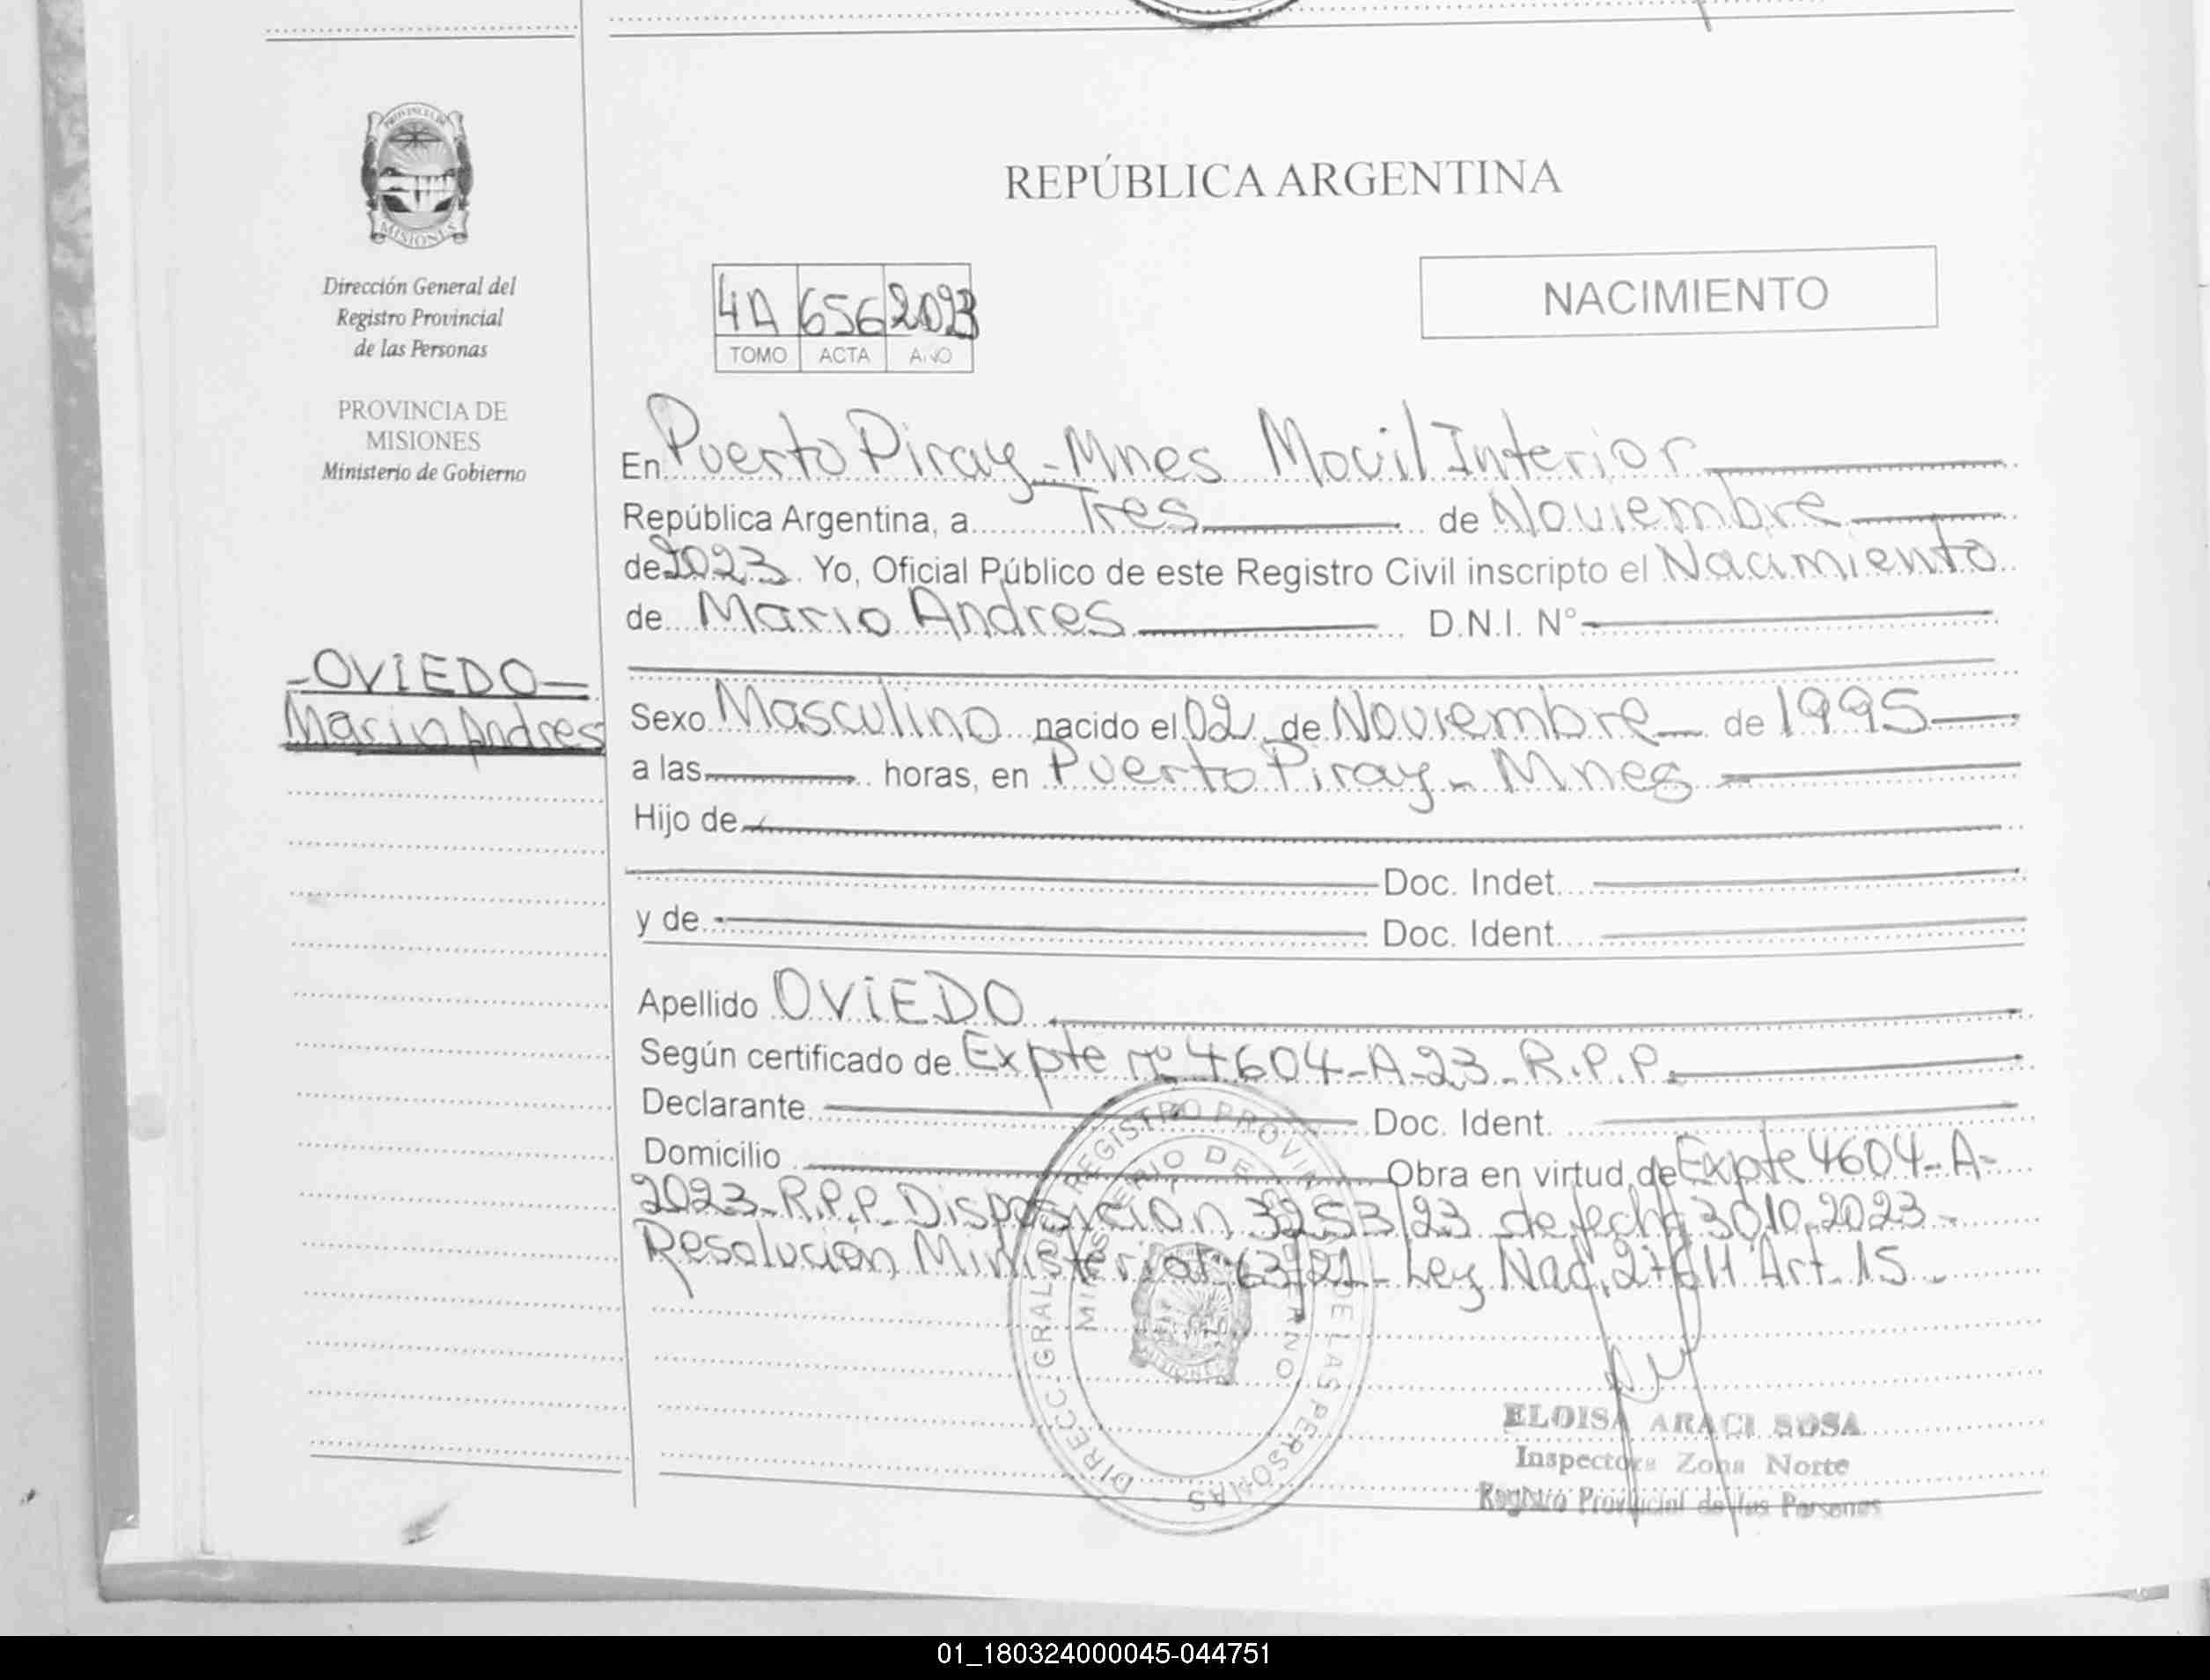 PROVINCIA DE
MISIONES
Dirección General del
Registro Provincial
de las Personas
PROVINCIA DE
MISIONES
Ministerio de Gobierno
-OVIEDO-
Mario Andres
REPÚBLICA ARGENTINA
NACIMIENTO
4A 656 2023
TOMO ACTA AÑO
En Puerto Piray - Mnes Movil Interior
República Argentina, a Tres de Noviembre
de 2023. Yo, Oficial Público de este Registro Civil inscripto el Nacimiento
de Mario Andres D.N.I. N°
Sexo Masculino nacido el 02 de Noviembre de 1995
a las horas, en Puerto Piray - Mnes
Hijo de
Doc. Indet.
y de Doc. Ident.
Apellido OVIEDO
Según certificado de Expte nº 4604-A-23-R.P.P.
Declarante Doc. Ident.
Domicilio Obra en virtud de Expte 4604-A-
2023-R.P.P. Disposicion 3253/23 de fecha 30.10.2023-
Resolución Ministerial 63/21- Ley Nac. 27611 Art. 15-
DIRECC. GRAL. DE REGISTRO PROVINCIAL DE LAS PERSONAS
MINISTERIO DE GOBIERNO
MISIONES
ELOISA ARACI SOSA
Inspectora Zona Norte
Registro Provincial de las Personas
01_180324000045-044751